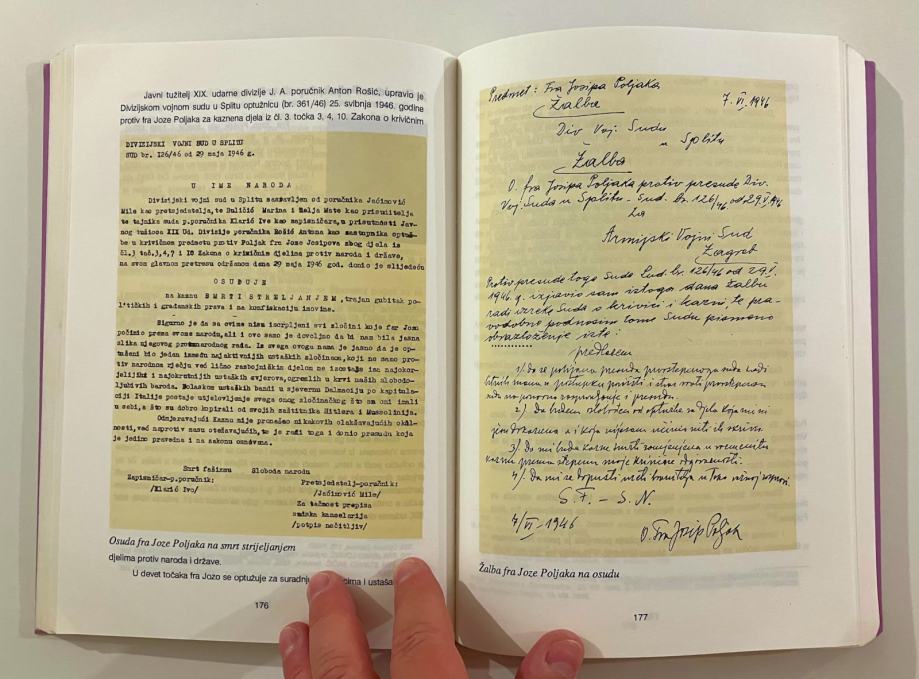 Javni tužitelj XIX. udarne divizije J. A. poručnik Anton Rošić, upravio je
Divizijskom vojnom sudu u Splitu optužnicu (br. 361/46) 25. svibnja 1946. godine
protiv fra Joze Poljaka za kaznena djela iz čl. 3. točka 3, 4, 10. Zakona o krivičnim
DIVIZIJSKI VOJNI SUD U SPLITU
SUD br. 126/46 od 29 maja 1946 g.
U IME NARODA
Divizijski vojni sud u Splitu sastavljen od poručnika Jaćimović
Mile kao pretsjedatelja, te Buličić Marina iElja Mate kao prisuditelja
te tajnika suda p.poručnika Klarić Ive kao zapisničara, u prisutnosti Jav-
nog tužioca XIX Ud. Divizije poručnika Rošić Antona kao zastupnika optuž-
be u krivičnom predmetu protiv Poljak fra Joze Josipova zbog djela iz
čl.3 tač.3,4,7 i 10 Zakona o krivičnim djelima protiv naroda i države,
na svom glavnom pretresu održanom dana 29 maja 1946 god. donio je slijedeću
OSUDJUJE
na kaznu SMRTI STRELJANJEM, trajan gubitak po-
litičkih i građanskih prava i na konfiskaciju imovine.
Sigurno je da sa ovime nisu iscrpljeni svi zločini koje fra Jozo
počinio prema svome narodu, ali i ovo samo je dovoljno da bi nam bila jasna
slika njegovog protunarodnog rada. Iz svega ovoga nama je jasno da je op-
tuženi bio jedan između najaktivnijih ustaških zločinaca, koji ne samo pro-
tiv narodno rječju već lično razbojničkim djelom ne izostaje iza najokor-
jelijih i najokrutnijih ustaških zvjerova, ogrezlih u krvi naših slobodo-
ljubivih naroda. Dolaskom ustaških bandi u sjevernu Dalmaciju po kapitula-
ciji Italije postaje utjelovljenje svega onog zločinačkog što su oni imali
u sebi, a što su dobro kopirali od svojih zaštitnika Hitlera i Mussolinija.
Odmjeravajući kaznu nije pronašao nikakovih olakšavajućih okol-
nosti, već naprotiv masu otežavajućih, te je radi toga i donio presudu koja
je jedino pravedna i na zakonu osnovana.
Smrt fašizmu Sloboda narodu
Zapisničar-p.poručnik: Pretsjedatelj-poručnik:
/Klarić Ivo/ /Jaćimović Mile/
Za tačnost prepisa
sudska kancelarija
/potpis nečitljiv/
Osuda fra Joze Poljaka na smrt strijeljanjem
djelima protiv naroda i države.
U devet točaka fra Jozo se optužuje za suradnju cima i ustaša
176
Predmet: Fra Josipa Poljaka
Žalba
7. VI. 1946
Div Voj. Sudu
u Splitu
Žalba
O. fra Josipa Poljaka protiv presude Div.
Voj. Suda u Splitu - Sud. br. 126/46 od 29.V.1946
za
Armijski Vojni Sud
Zagreb
Protiv presude toga Suda Sud. br. 126/46 od 29.V.
1946. g. izjavio sam istoga dana žalbu
radi izreke Suda o krivici i kazni, te pra-
vodobno podnosim tome Sudu pismeno
obrazloženje iste:
predlažem
1/ da se pobijana presuda prvostepenog suda radi
bitnih mana u postupku poništi i stvar vrati prvostepenom
sudu na ponovno raspravljanje i presudu.
2/ Da budem oslobođen od optužbe za djela koja mi ni
jesu dokazana a i koja nijesam učinio niti ih skrivio.
3/ Da mi bude kazna smrti zamijenjena u vremenitu
kaznu prema stepenu moje krivične odgovornosti.
4/ Da mi se dopusti uzeti branitelja u toku važnoj raspravi.
S. F. – S. N.
4/VI-1946 O. Fra Josip Poljak
Žalba fra Joze Poljaka na osudu
177